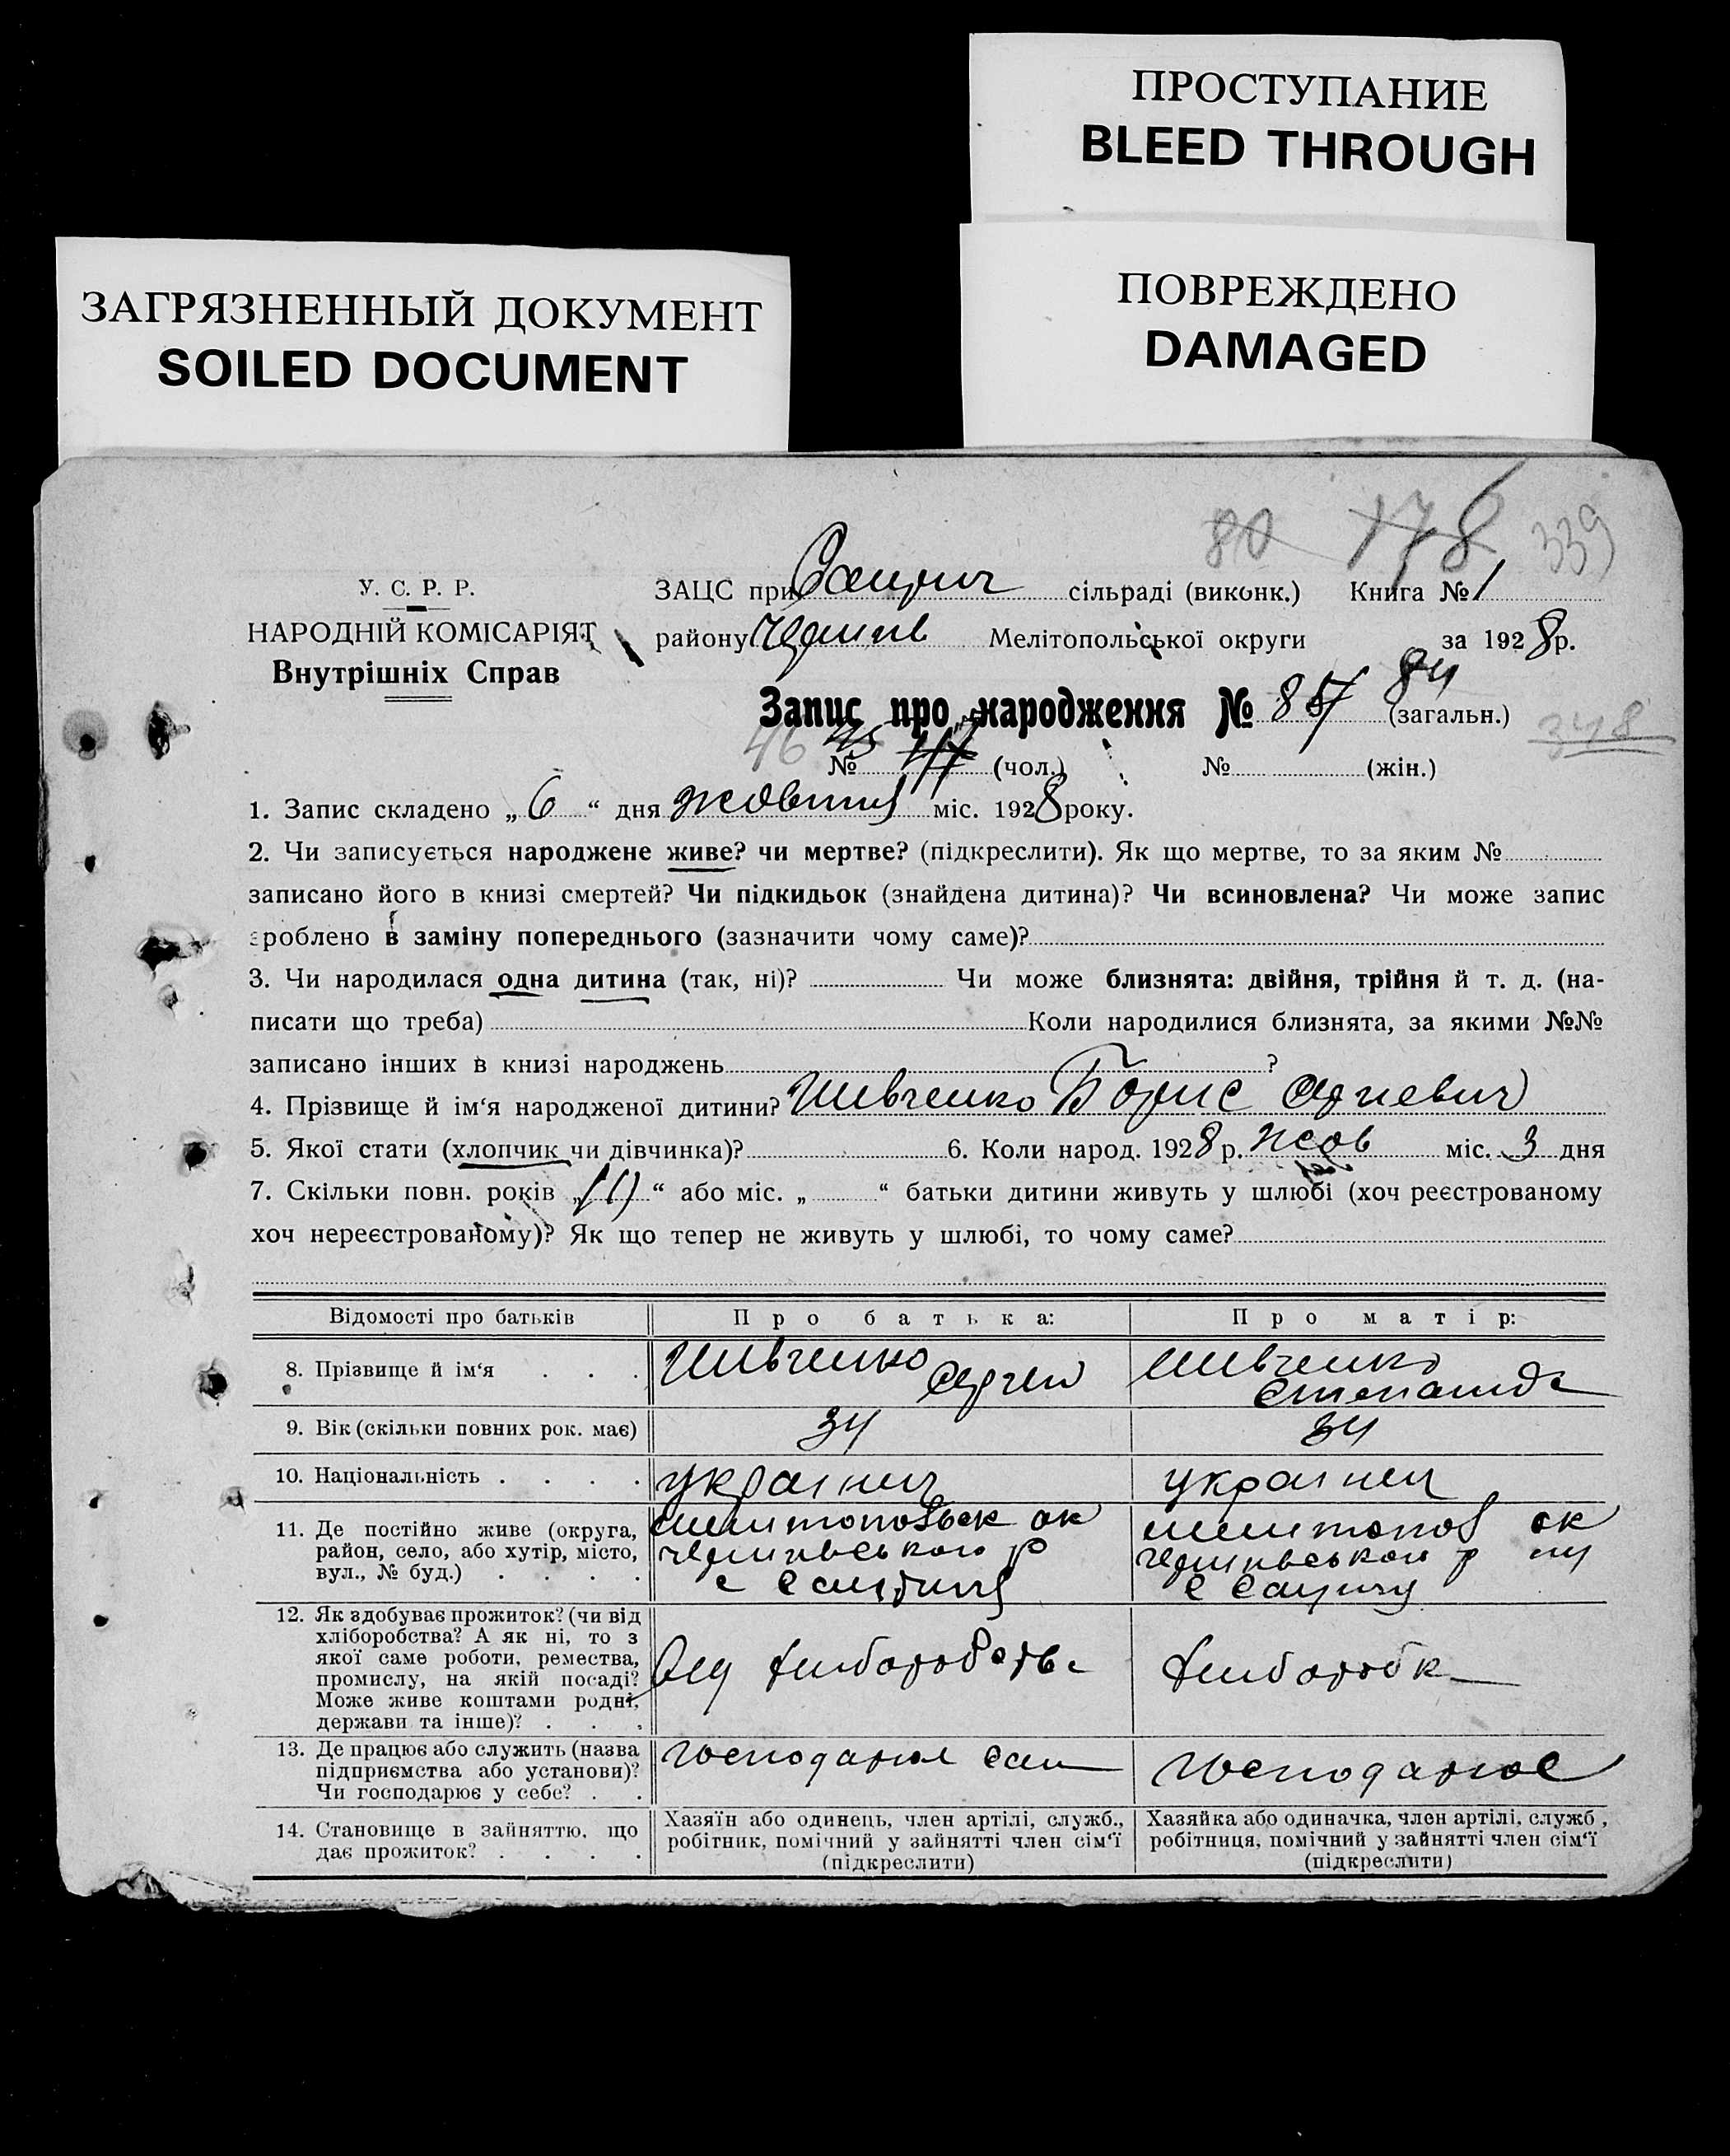 ПРОСТУПАНИЕ
BLEED THROUGH
ЗАГРЯЗНЕННЫЙ ДОКУМЕНТ
SOILED DOCUMENT
ПОВРЕЖДЕНО
DAMAGED
80 178 339
У. С. Р. Р.
НАРОДНІЙ КОМІСАРІЯТ
Внутрішніх Справ
ЗАЦС при сільраді (виконк.) Книга № 1
району Мелітопольської округи за 1928 р.
84
Запис про народження № 87 (загальн.)
348
46 45
№ 47 (чол.) № (жін.)
1. Запис складено „ 6 “ дня жовтня міс. 1928 року.
2. Чи записується народжене живе? чи мертве? (підкреслити). Як що мертве, то за яким №
записано його в книзі смертей? Чи підкидьок (знайдена дитина)? Чи всиновлена? Чи може запис
зроблено в заміну попереднього (зазначити чому саме)?
3. Чи народилася одна дитина (так, ні)? Чи може близнята: двійня, трійня й т. д. (на-
писати що треба) Коли народилися близнята, за якими №№
записано інших в книзі народжень ?
4. Прізвище й ім‘я народженої дитини? Шевченко Борис
5. Якої стати (хлопчик чи дівчинка)? 6. Коли народ. 1928 р. жов міс. 3 дня
7. Скільки повн. років „ “ або міс. „ “ батьки дитини живуть у шлюбі (хоч реєстрованому
хоч нереєстрованому)? Як що тепер не живуть у шлюбі, то чому саме?
Відомості про батьків Про батька: Про матір:
8. Прізвище й ім‘я Шевченко Сергей Шевченко Степанида
9. Вік (скільки повних рок. має) 34 34
10. Національність українец українец
11. Де постійно живе (округа,
район, село, або хутір, місто,
вул., № буд.)
12. Як здобуває прожиток? (чи від
хліборобства? А як ні, то з
якої саме роботи, ремества,
промислу, на якій посаді?
Може живе коштами родні,
держави та інше)?
13. Де працює або служить (назва
підприємства або установи)?
Чи господарює у себе?
господарює сам господарює
14. Становище в зайняттю, що
дає прожиток?
Хазяїн або одинець, член артілі, служб.,
робітник, помічний у зайнятті член сім‘ї
(підкреслити)
Хазяйка або одиначка, член артілі, служб,
робітниця, помічний у зайнятті член сім‘ї
(підкреслити)